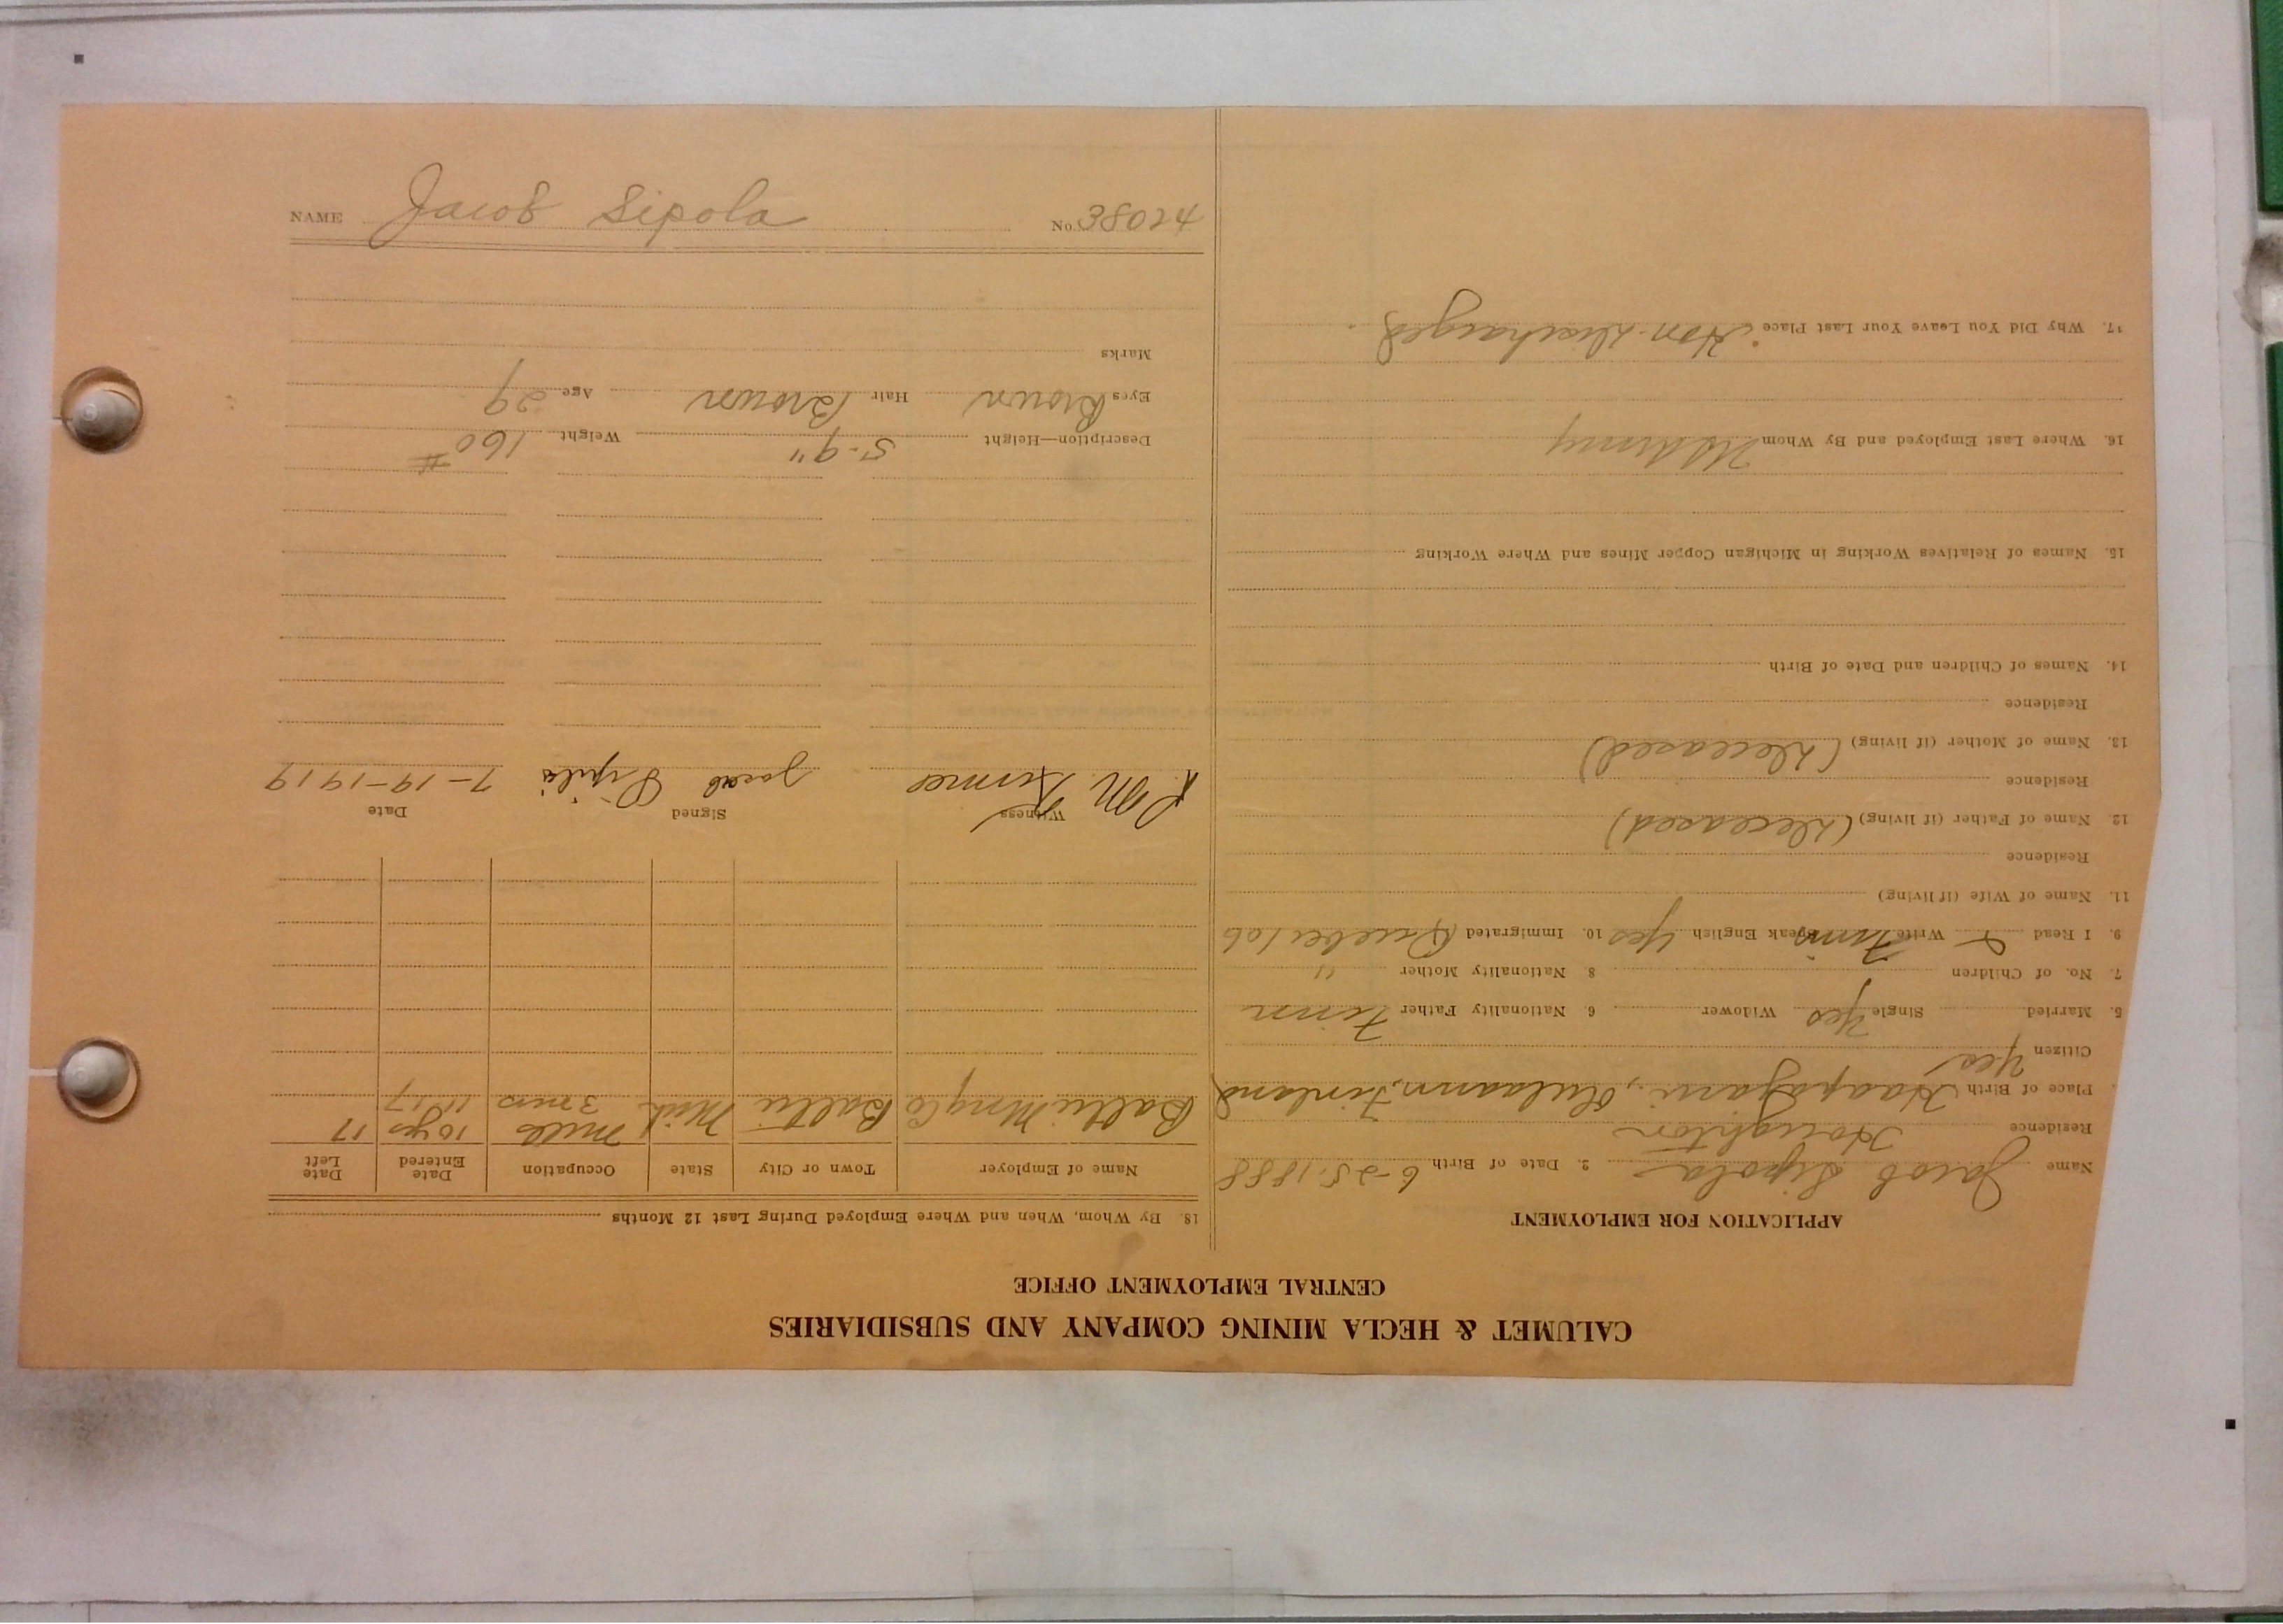 NAME Jacob Sipola No. 38024
CALUMET & HECLA MINING COMPANY AND SUBSIDIARIES
CENTRAL EMPLOYMENT OFFICE
APPLICATION FOR EMPLOYMENT
Name Jacob Sipola 2. Date of Birth 6-25-1888
Residence Houghton
Place of Birth Haapajarvi, Finland
Citizen Yes
5. Married Single Yes Widower 6. Nationality Father Finn
7. No. of Children 8. Nationality Mother "
9. I Read & Write Finnish Speak English Yes 10. Immigrated Quebec
11. Name of Wife (if living)
Residence
12. Name of Father (if living) (Deceased)
Residence
13. Name of Mother (if living) (Deceased)
Residence
14. Names of Children and Date of Birth
15. Names of Relatives Working in Michigan Copper Mines and Where Working
16. Where Last Employed and By Whom US Army
17. Why Did You Leave Your Last Place Hon. Discharged.
18. By Whom, When and Where Employed During Last 12 Months
Name of Employer Town or City State Occupation Date Entered Date Left
Baltic Mng Co Baltic Mich Mill 10 yrs 17
3 mos 11-17
Witness Signed Date
R. M. Jacob 7-19-1919
Description—Height 5'-9" Weight 160#
Eyes Brown Hair Brown Age 29
Marks